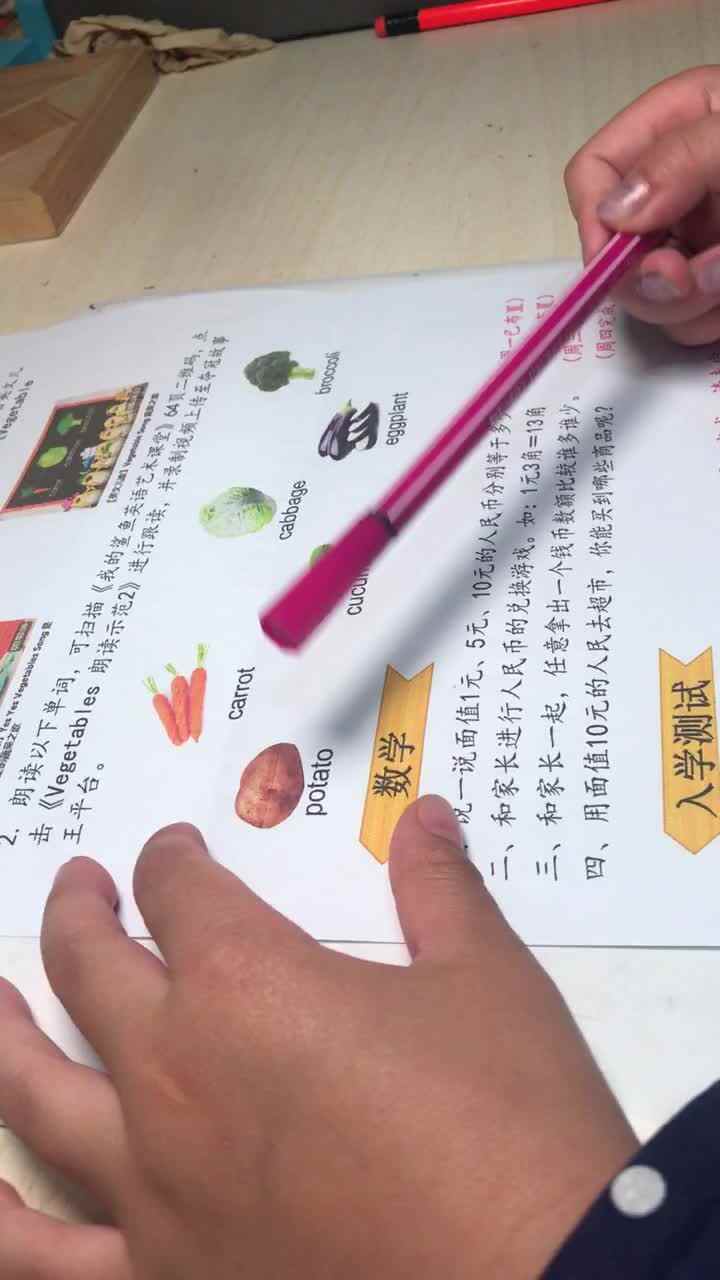 2. 朗读以下单词，可扫描《我的鲨鱼英语艺术课堂》64页二维码，点
击《Vegetables 朗读示范2》进行跟读，并录制视频上传至夺冠故事
王平台。
carrot
cabbage
broccoli
potato
cucu
eggplant
数学
说一说面值1元、5元、10元的人民币分别等于多少
二、和家长进行人民币的兑换游戏。如：1元3角=13角
三、和家长一起，任意拿出一个钱币数额比较谁多谁少。
四、用面值10元的人民去超市，你能买到哪些商品呢?
入学测试